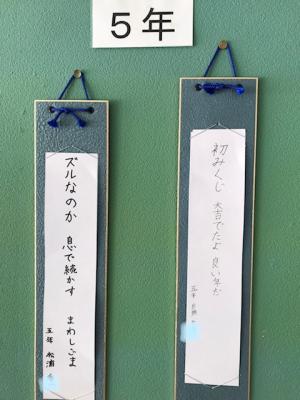 ５年
初みくじ 大吉でたよ 良い年だ
五年
ズルなのか 息で続かす まわしごま
五年 松浦